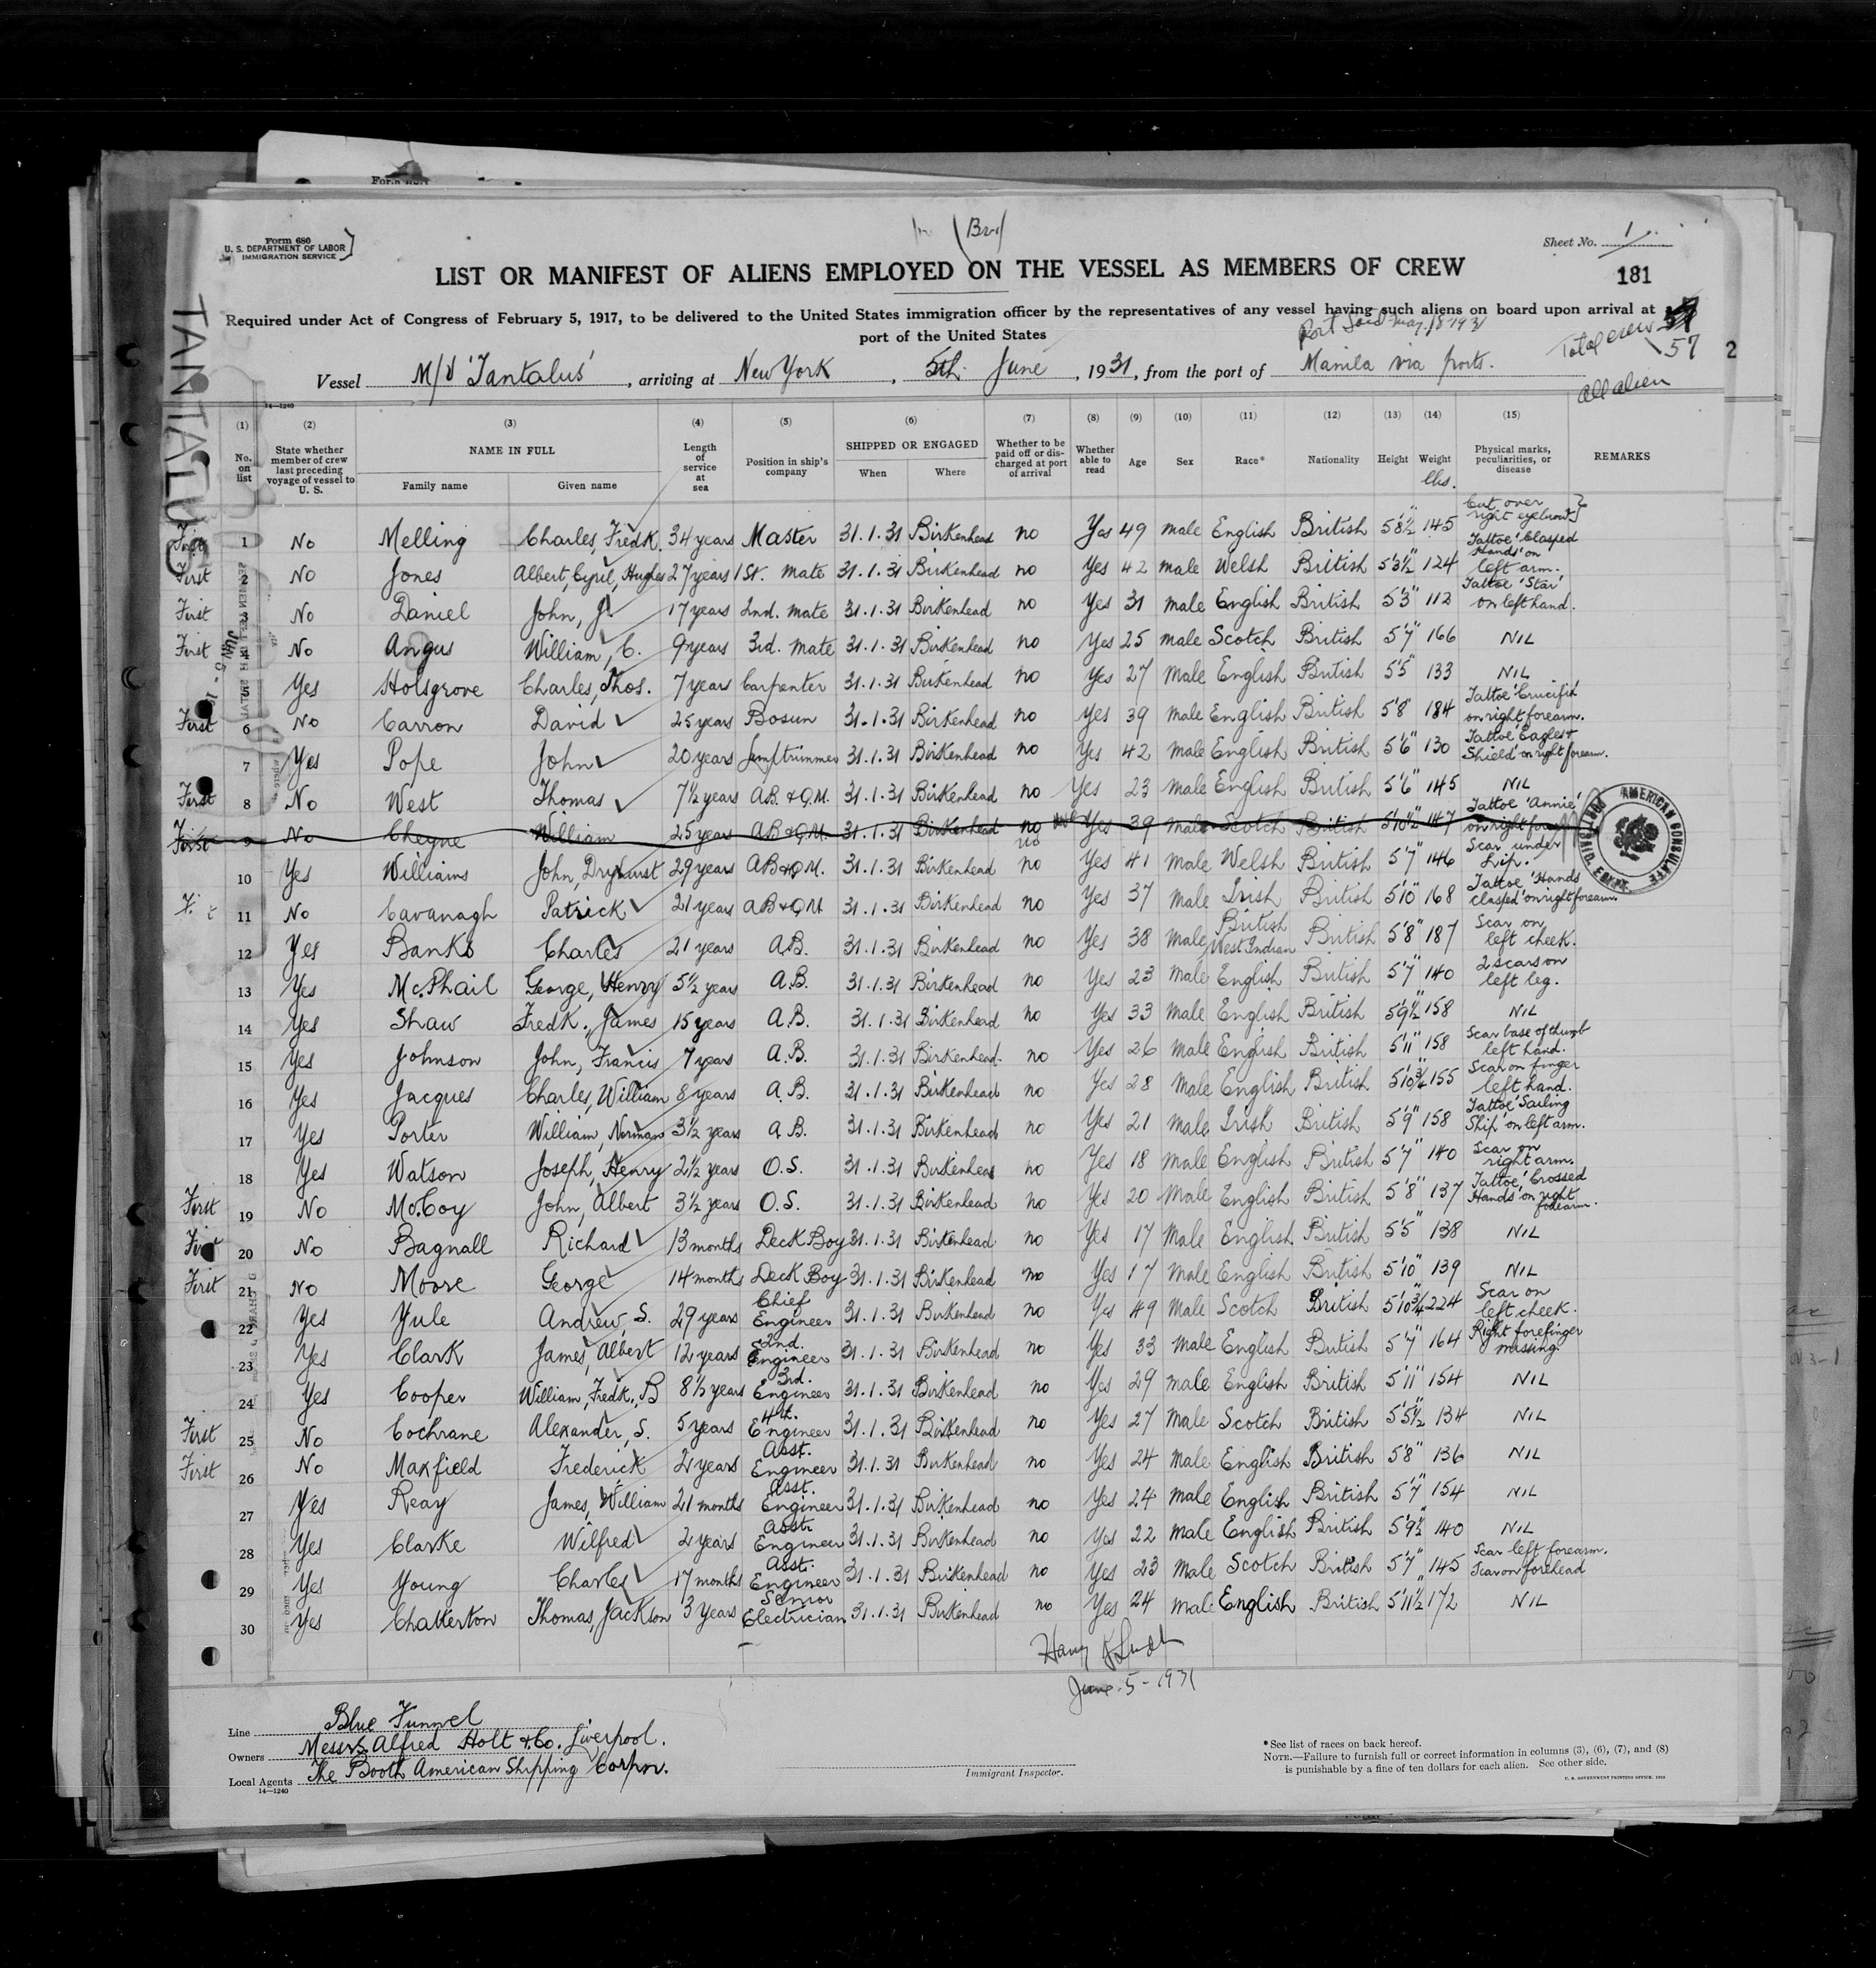 Form 680
U. S. DEPARTMENT OF LABOR
IMMIGRATION SERVICE
(Brit)
Sheet No. 1
181
LIST OR MANIFEST OF ALIENS EMPLOYED ON THE VESSEL AS MEMBERS OF CREW
Required under Act of Congress of February 5, 1917, to be delivered to the United States immigration officer by the representatives of any vessel having such aliens on board upon arrival at
port of the United States
Port Said May 18 1931
Total crew 57
2
Vessel M/V 'Tantalus', arriving at New York, 5th June, 1931, from the port of Manila via ports.
all alien
TANTALUS
14—1240
(1) (2) (3) (4) (5) (6) (7) (8) (9) (10) (11) (12) (13) (14) (15)
No. on list State whether member of crew last preceding voyage of vessel to U. S. NAME IN FULL Family name Given name Length of service at sea Position in ship's company SHIPPED OR ENGAGED When Where Whether to be paid off or discharged at port of arrival Whether able to read Age Sex Race* Nationality Height Weight lbs. Physical marks, peculiarities, or disease REMARKS
First 1 No Melling Charles, Fredk. 34 years Master 31.1.31 Birkenhead no Yes 49 male English British 5'8½" 145 Cut over right eyebrow
First 2 No Jones Albert, Cyril, Hughes 27 years 1st. mate 31.1.31 Birkenhead no Yes 42 male Welsh British 5'3½" 124 Tattoe 'Clasped Hands' on left arm.
First 3 No Daniel John, J. 17 years 2nd. mate 31.1.31 Birkenhead no Yes 31 male English British 5'3" 112 Tattoe 'Star' on left hand.
First 4 No Angus William, C. 9 years 3rd. mate 31.1.31 Birkenhead no Yes 25 male Scotch British 5'7" 166 NIL
5 Yes Holsgrove Charles, Thos. 7 years Carpenter 31.1.31 Birkenhead no Yes 27 Male English British 5'5" 133 NIL
First 6 No Carron David 25 years Bosun 31.1.31 Birkenhead no Yes 39 male English British 5'8" 184 Tattoe 'Crucifix' on right forearm.
7 Yes Pope John 20 years Lamptrimmer 31.1.31 Birkenhead no Yes 42 Male English British 5'6" 130 Tattoe 'Eagles & Shield' on right forearm.
First 8 No West Thomas 7½ years A.B. & Q.M. 31.1.31 Birkenhead no Yes 23 Male English British 5'6" 145 NIL
First 9 No Cheyne William 25 years AB & Q.M. 31.1.31 Birkenhead no Yes 39 Male Scotch British 5'10½" 147 Tattoe 'Annie' on right forearm
10 Yes Williams John, Dryhurst 29 years AB & Q.M. 31.1.31 Birkenhead no Yes 41 Male Welsh British 5'7" 146 Scar under Lip.
11 No Cavanagh Patrick 21 years AB & Q.M 31.1.31 Birkenhead no Yes 37 Male Irish British 5'10" 168 Tattoe 'Hands clasped' on right forearm.
12 Yes Banks Charles 21 years A.B. 31.1.31 Birkenhead no Yes 38 Male British West Indian British 5'8" 187 Scar on left cheek.
13 Yes Mc.Phail George, Henry 5½ years A.B. 31.1.31 Birkenhead no Yes 23 Male English British 5'7" 140 2 scars on left leg.
14 Yes Shaw Fredk., James 15 years A.B. 31.1.31 Birkenhead no Yes 33 Male English British 5'9½" 158 NIL
15 Yes Johnson John, Francis 7 years A.B. 31.1.31 Birkenhead. no Yes 26 Male English British 5'11" 158 Scar base of thumb left hand.
16 Yes Jacques Charles, William 8 years A.B. 31.1.31 Birkenhead no Yes 28 Male English British 5'10¾" 155 Scar on finger left hand.
17 Yes Porter William, Norman 3½ years A.B. 31.1.31 Birkenhead no Yes 21 Male Irish British 5'9" 158 Tattoe 'Sailing Ship' on left arm.
18 Yes Watson Joseph, Henry 2½ years O.S. 31.1.31 Birkenhead no Yes 18 Male English British 5'7" 140 Scar on right arm.
First 19 No Mc.Coy John, Albert 3½ years O.S. 31.1.31 Birkenhead no Yes 20 Male English British 5'8" 137 Tattoe 'Crossed Hands' on right forearm.
First 20 No Bagnall Richard 13 months Deck Boy 31.1.31 Birkenhead no Yes 17 Male English British 5'5" 138 NIL
First 21 No Moore George 14 months Deck Boy 31.1.31 Birkenhead no Yes 17 Male English British 5'10" 139 NIL
22 Yes Yule Andrew, S. 29 years Chief Engineer 31.1.31 Birkenhead no Yes 49 Male Scotch British 5'10¾" 224 Scar on left cheek.
23 Yes Clark James, Albert 12 years 2nd. Engineer 31.1.31 Birkenhead no Yes 33 Male English British 5'7" 164 Right forefinger missing
24 Yes Cooper William, Fredk., B 8½ years 3rd. Engineer 31.1.31 Birkenhead no Yes 29 Male English British 5'11" 154 NIL
First 25 No Cochrane Alexander, S. 5 years 4th. Engineer 31.1.31 Birkenhead no Yes 27 Male Scotch British 5'5½" 134 NIL
First 26 No Maxfield Frederick 2 years Asst. Engineer 31.1.31 Birkenhead no Yes 24 Male English British 5'8" 136 NIL
27 Yes Reay James, William 21 months Asst. Engineer 31.1.31 Birkenhead no Yes 24 Male English British 5'7" 154 NIL
28 Yes Clarke Wilfred 2 years Asst. Engineer 31.1.31 Birkenhead no Yes 22 Male English British 5'9½" 140 NIL
29 Yes Young Charles 17 months Asst. Engineer 31.1.31 Birkenhead no Yes 23 Male Scotch British 5'7" 145 Scar left forearm. Scar on forehead
30 Yes Chatterton Thomas, Jackson 3 years Senior Electrician 31.1.31 Birkenhead no Yes 24 Male English British 5'11½" 172 NIL
AMERICAN CONSULATE PORT SAID EGYPT
June 5-1931
Line Blue Funnel
Owners Messrs. Alfred Holt & Co. Liverpool.
Local Agents The Booth American Shipping Corpn.
14—1240
Immigrant Inspector.
*See list of races on back hereof.
NOTE.—Failure to furnish full or correct information in columns (3), (6), (7), and (8)
is punishable by a fine of ten dollars for each alien. See other side.